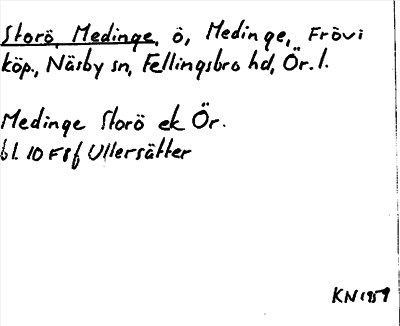 Storö, Medinge, ö, Medinge, Frövi
köp., Näsby sn, Fellingsbro hd, Ör. l.
Medinge Storö ek Ör.
bl. 10 F8f Ullersätter
KN 1959